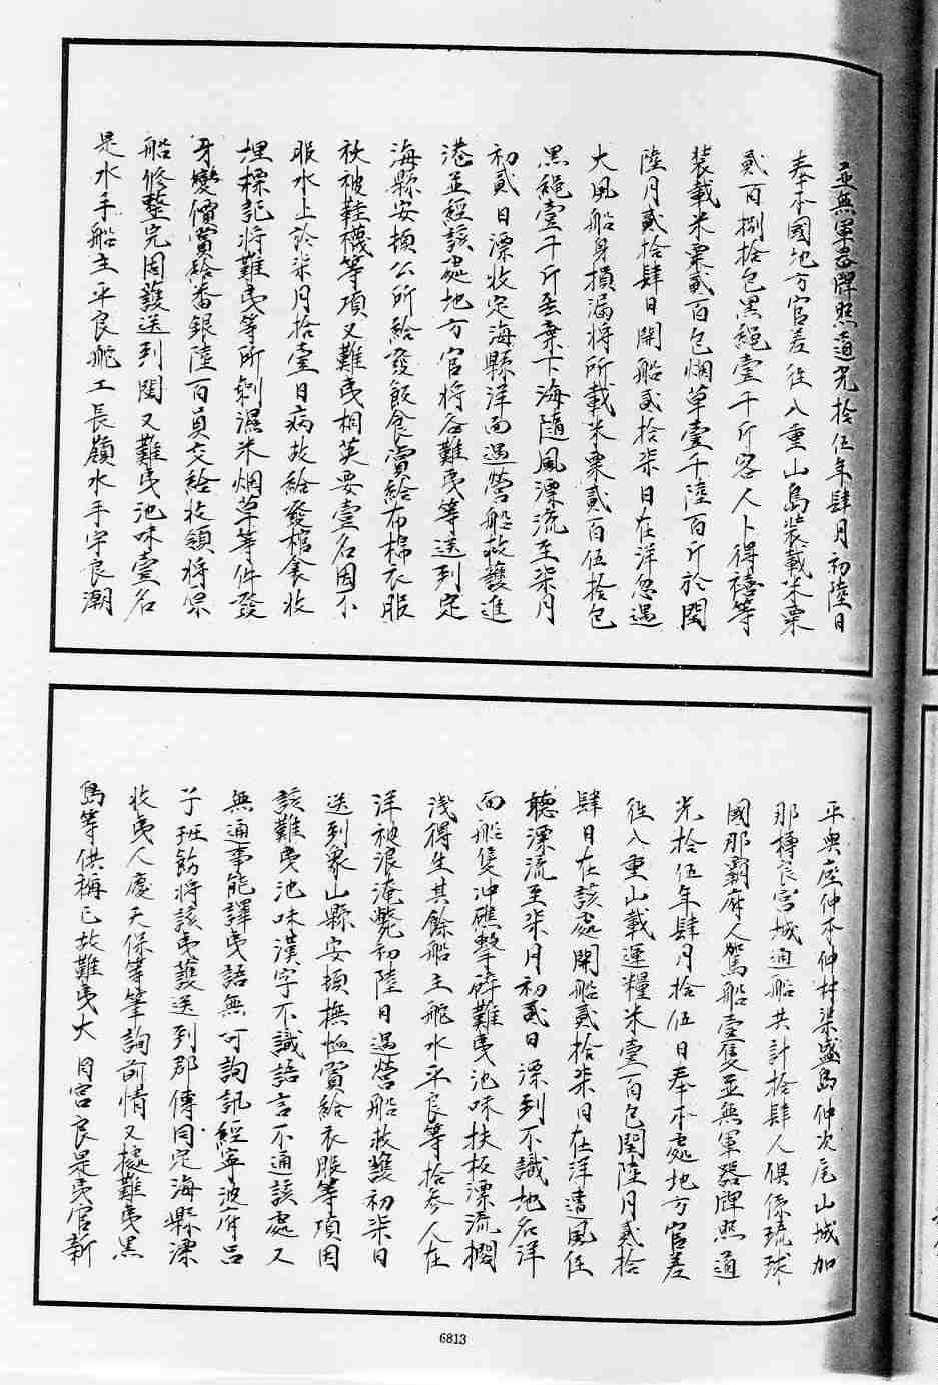 並無軍器牌照道光拾伍年肆月初陸日
奉本國地方官差徃八重山島裝載米粟
貳百捌拾包黑繩壹千斤客人卜得禧等
裝載米粟貳百包烟草壹千陸百斤於閏
陸月貳拾肆日開船貳拾柒日在洋忽遇
大風船身損漏將所載米粟貳百伍拾包
黑繩壹千斤丟棄下海隨風漂流至柒月
初貳日漂收定海縣洋面遇營船救護進
港並經該處地方官將各難夷等送到定
海縣安頓公所給發飯食賞給布棉衣服
被鞋襪等項又難夷相英要壹名因不
服水土於柒月拾壹日病故給發棺衾收
埋標記將難夷等所剩濕米烟草等件發
牙變價賞給番銀陸百員交給收領將原
船修整完固護送到閩又難夷池味壹名
是水手船主平良舵工長嶺水手宇良潮
平與座仲本仲村渠盛島仲次尾山城加
那樽宮城通船共計拾肆人俱係琉球
國那霸府人駕船壹隻並無軍器牌照道
光拾伍年肆月拾伍日奉本處地方官差
徃八重山載運糧米壹百包閏陸月貳拾
肆日在該處開船貳拾柒日在洋遭風任
聽漂流至柒月初貳日漂到不識地名洋
面船隻沖礁擊碎難夷池味扶板漂流擱
淺得生其餘船主舵水平良等拾參人在
洋被浪淹斃初陸日遇營船救護初柒日
送到象山縣安頓撫恤賞給衣服等項因
該難夷池味漢字不識語言不通該處又
無通事能譯夷語無可詢訊經寧波府呂
子班飭將該夷護送到郡傳同定海縣漂
收夷人慶天保等筆詢前情又據難夷黑
島等供稱已故難夷大宮良是夷官新